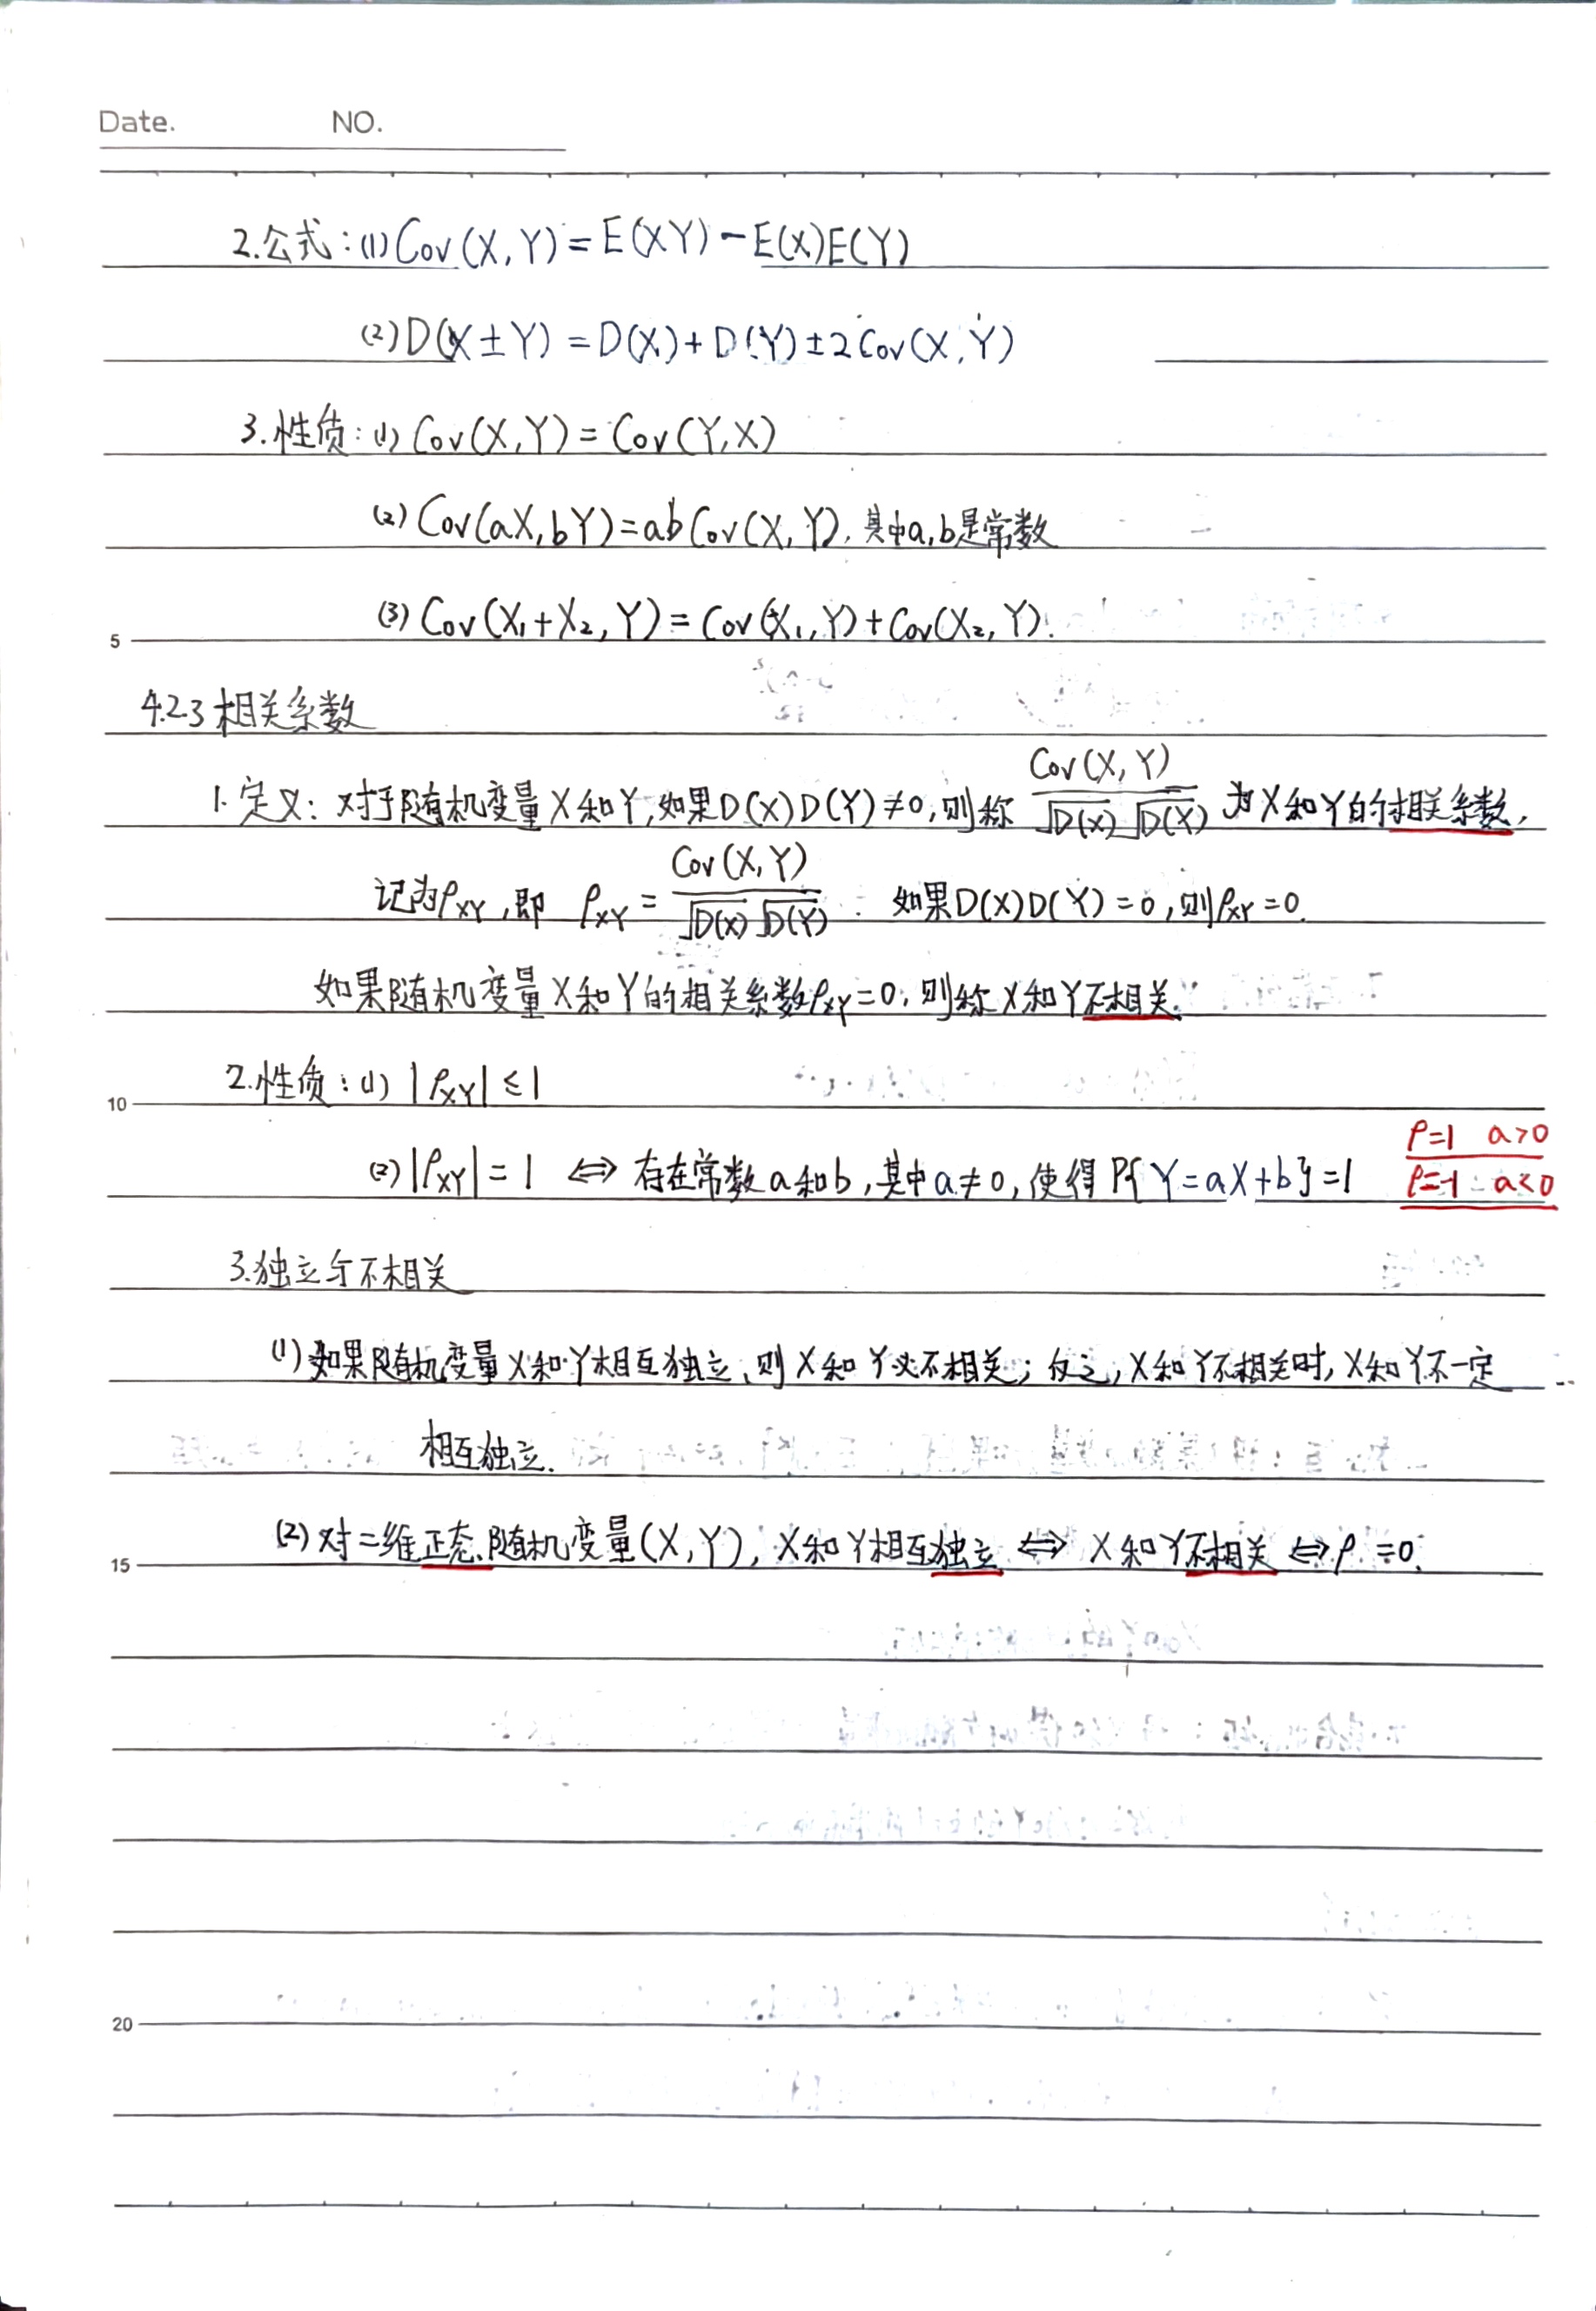 Date. NO.
2.公式:(1) Cov(X,Y)=E(XY)-E(X)E(Y)
(2) D(X±Y)=D(X)+D(Y)±2Cov(X,Y)
3.性质:(1) Cov(X,Y)=Cov(Y,X)
(2) Cov(aX,bY)=abCov(X,Y),其中a,b是常数
5 (3) Cov(X₁+X₂,Y)=Cov(X₁,Y)+Cov(X₂,Y).
4.2.3 相关系数
1.定义:对于随机变量X和Y,如果D(X)D(Y)≠0,则称 Cov(X,Y)/√D(X)√D(X) 为X和Y的相关系数,
记为ρXY,即 ρXY=Cov(X,Y)/√D(X)√D(Y). 如果D(X)D(Y)=0,则ρXY=0.
如果随机变量X和Y的相关系数ρXY=0,则称X和Y不相关.
10 2.性质:(1) |ρXY|≤1
(2) |ρXY|=1 ⇔ 存在常数a和b,其中a≠0,使得P{Y=aX+b}=1
ρ=1 a>0
ρ=-1 a<0
3.独立与不相关
(1) 如果随机变量X和Y相互独立,则X和Y必不相关;反之,X和Y不相关时,X和Y不一定
相互独立.
15 (2) 对二维正态随机变量(X,Y),X和Y相互独立 ⇔ X和Y不相关 ⇔ ρ=0.
20